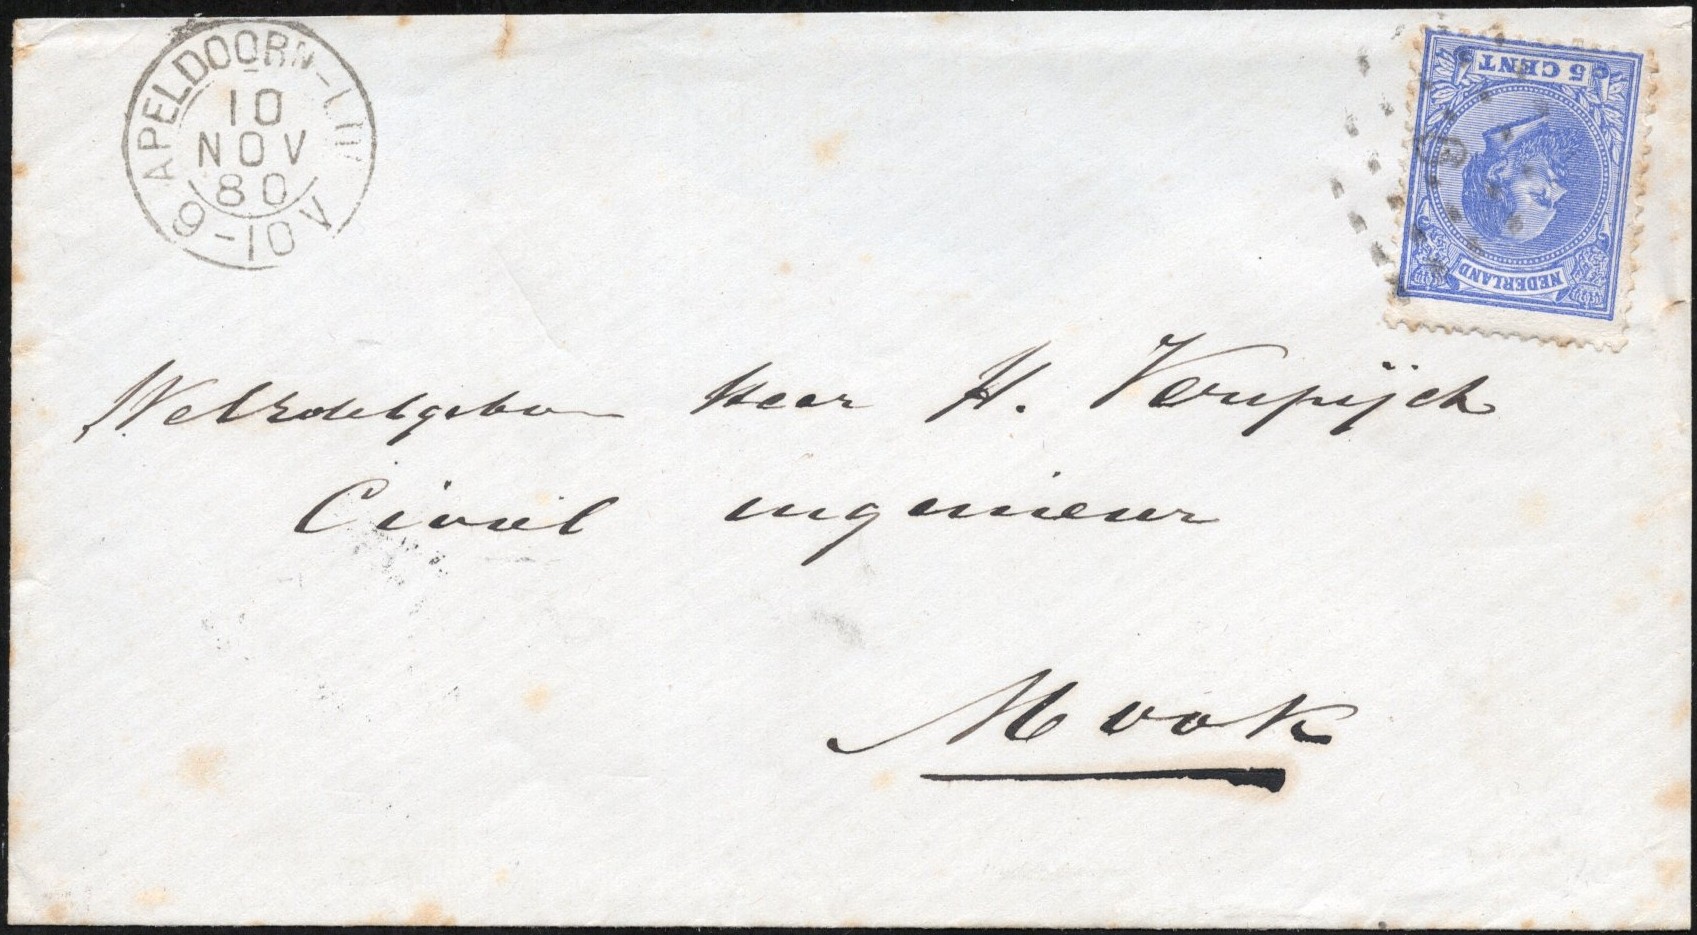 APELDOORN-LUW
10
NOV
80
9-10V
5 CENT
NEDERLAND
WelEdelgebor Heer H. Verspijck
Civiel ingenieur
Mook